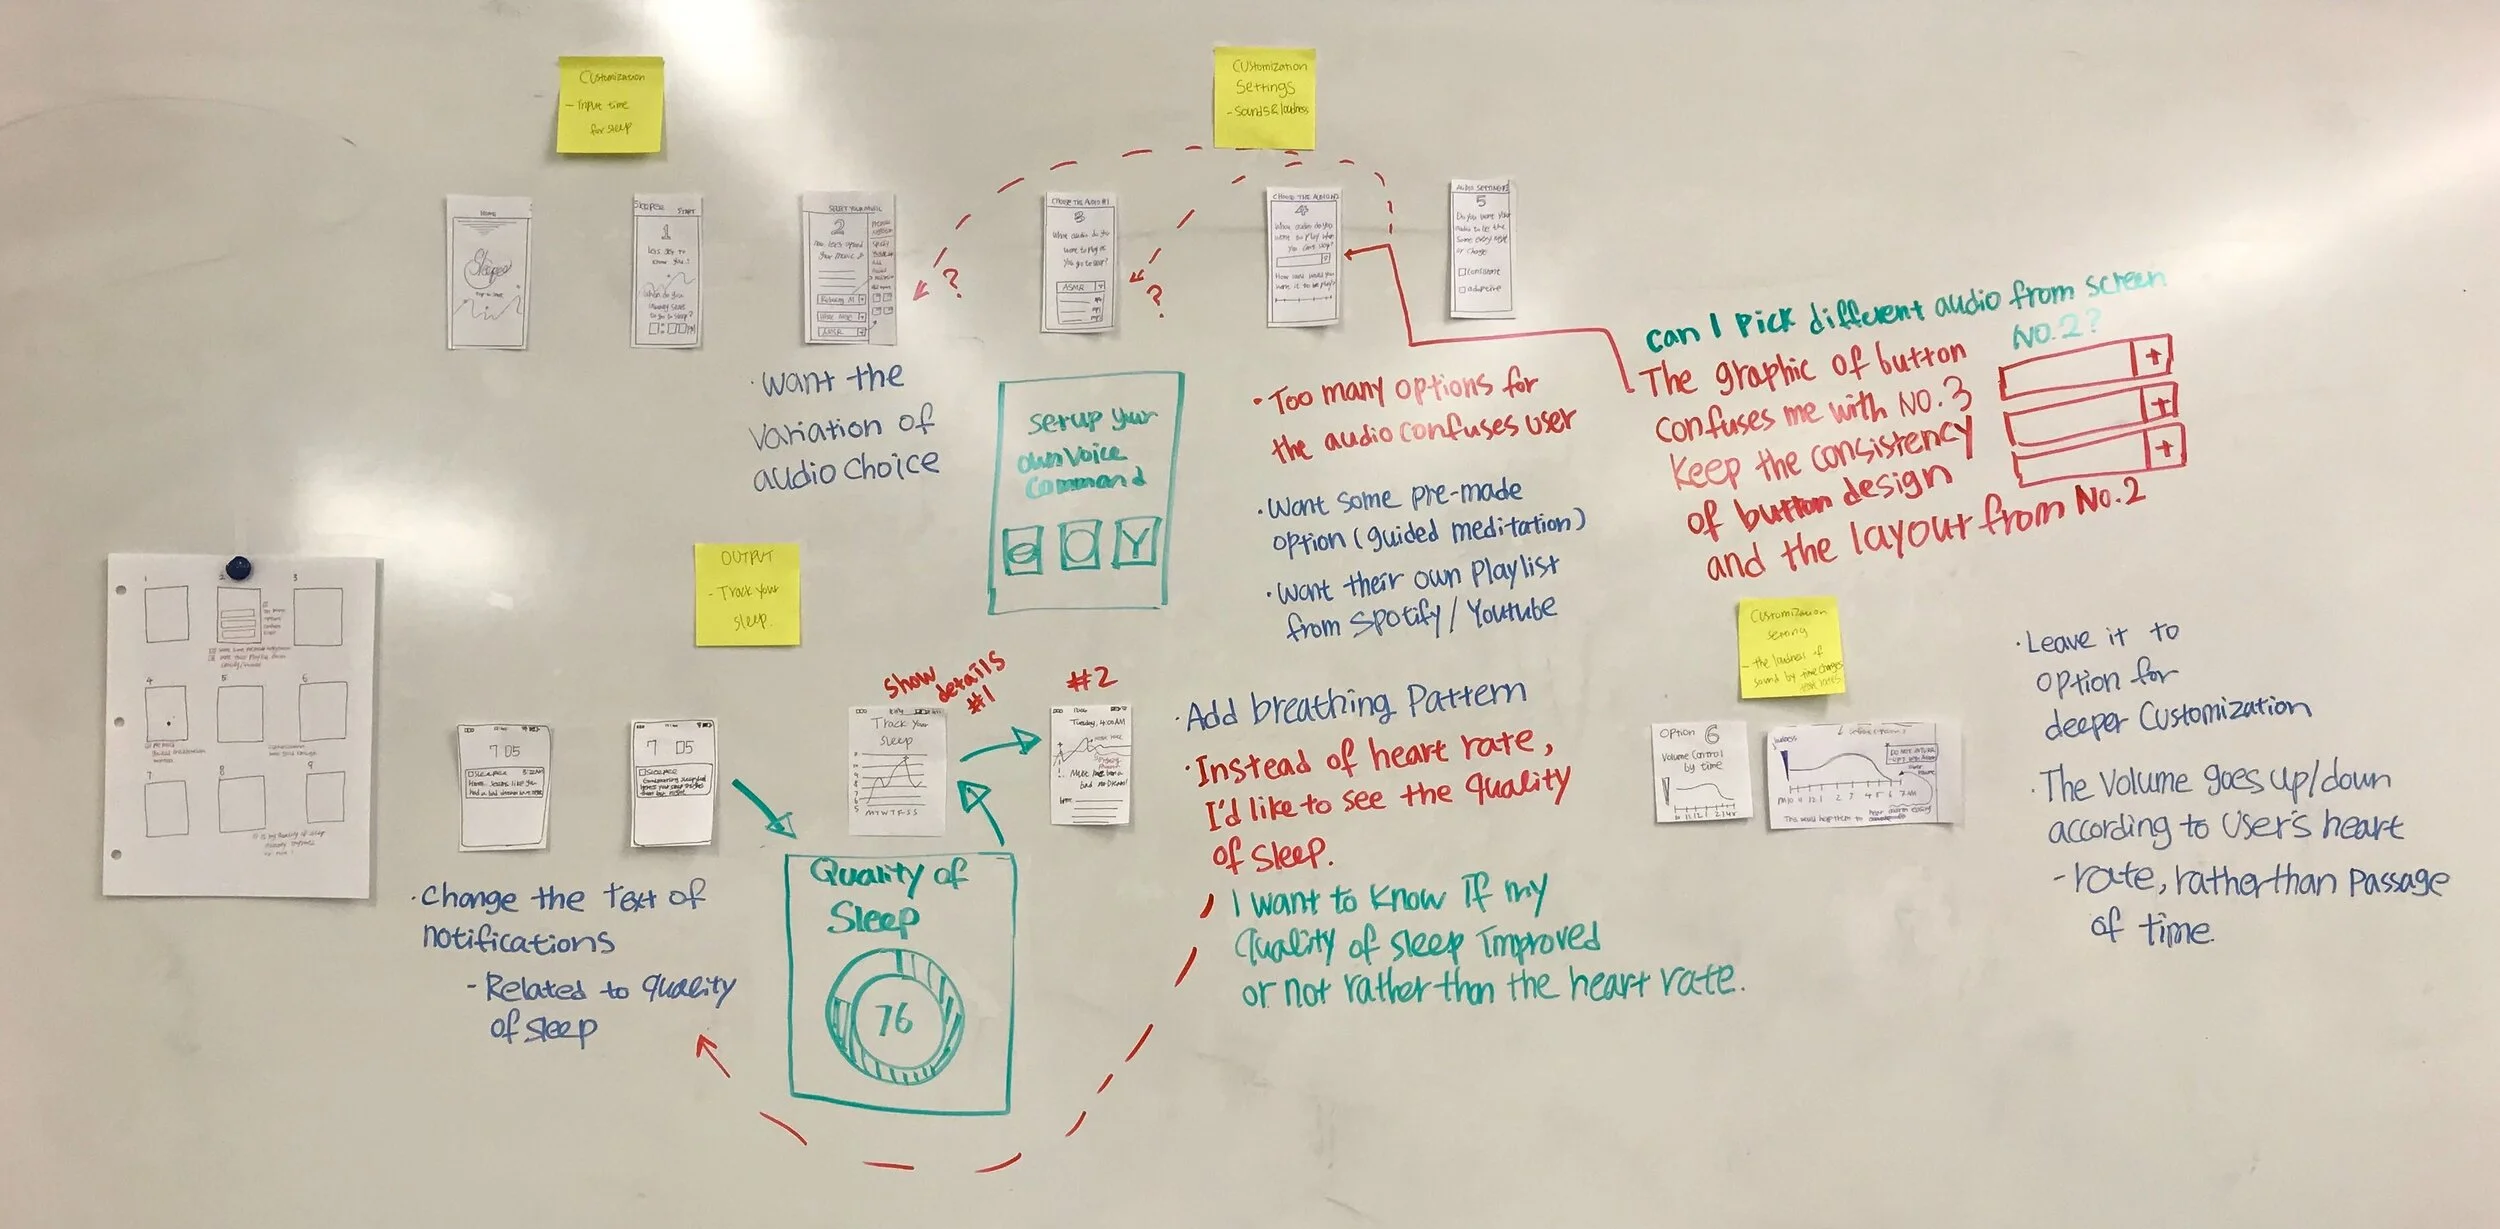 Customization
- Input time
for sleep
Customization
Settings
- Sounds & loudness
HOME
Sleeper
SLEEPER START
1
Lets get to
know you!
When do you
usually start
to go to sleep?
SELECT YOUR MUSIC
2
Now, lets upload
your music
Relaxing M
White Noise
ASMR
CHOOSE THE AUDIO #1
3
What audio do you
want to play as
you go to sleep?
ASMR
CHOOSE THE AUDIO #2
4
What audio do you
want to play when
you can't sleep?
How loud would you
want it to be played?
AUDIO SETTINGS
5
Do you want your
audio to be the
same every night
or change
consistent
adaptive
?
?
· Want the
variation of
audio choice
setup your
own voice
command
e O Y
· Too many options for
the audio confuses user
· Want some pre-made
option (guided meditation)
· Want their own Playlist
from Spotify / Youtube
can I pick different audio from screen
NO.2?
The graphic of button
confuses me with NO.3
Keep the consistency
of button design
and the layout from No.2
+
+
+
1 2 3
4 5 6
7 8 9
OUTPUT
- Track your
sleep.
7 05
SLEEPER
7 05
SLEEPER
· Change the text of
notifications
- Related to quality
of sleep
show
details
#1
Track your
sleep
M T W T F S S
#2
Tuesday, 4:00 AM
Quality of
Sleep
76
· Add breathing Pattern
· Instead of heart rate,
I'd like to see the quality
of sleep.
I want to know if my
Quality of sleep improved
or not rather than the heart rate.
Customization
setting
- the loudness of
sound by time changes
Option 6
Volume control
by time
loudness
This would help them to
· Leave it to
option for
deeper customization
· The volume goes up/down
according to user's heart
- rate, rather than passage
of time.